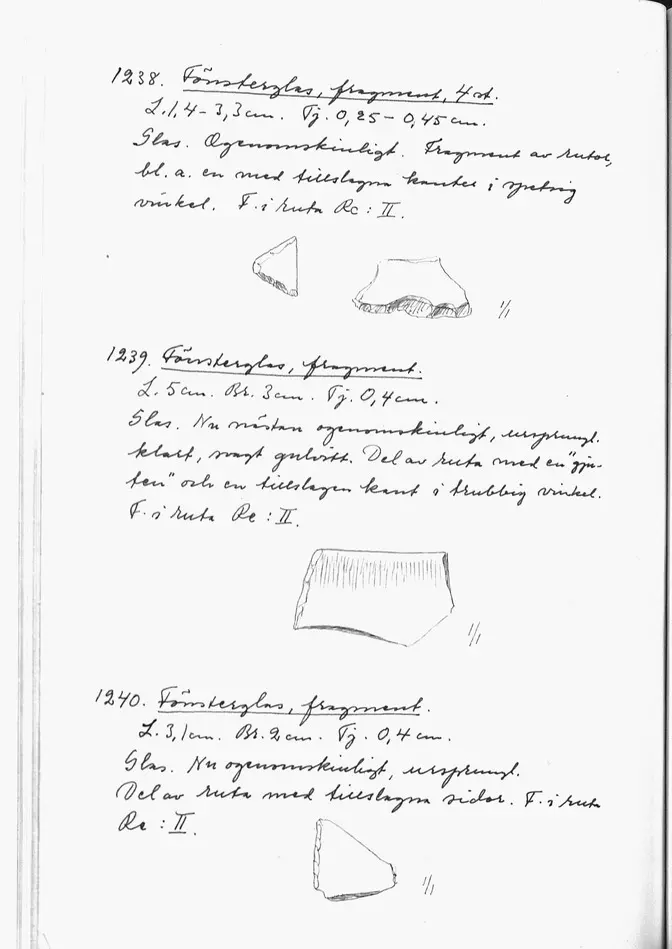 1238. Fönsterglas, fragment, 4 st.
L. 1,4 – 3,3 cm. Tj. 0,25 – 0,45 cm.
Glas. Ogenomskinligt. Fragment av rutor,
bl. a. en med tillslagna kanter i spetsig
vinkel. F. i ruta Rc : II.
1/1
1239. Fönsterglas, fragment.
L. 5 cm. Br. 3 cm. Tj. 0,4 cm.
Glas. Nu nästan ogenomskinligt, ursprungl.
klart, svagt gulvitt. Del av ruta med en "gju-
ten" och en tillslagen kant i trubbig vinkel.
F. i ruta Rc : II.
1/1
1240. Fönsterglas, fragment.
L. 3,1 cm. Br. 2 cm. Tj. 0,4 cm.
Glas. Nu ogenomskinligt, ursprungl.
Del av ruta med tillslagna sidor. F. i ruta
Rc : II.
1/1